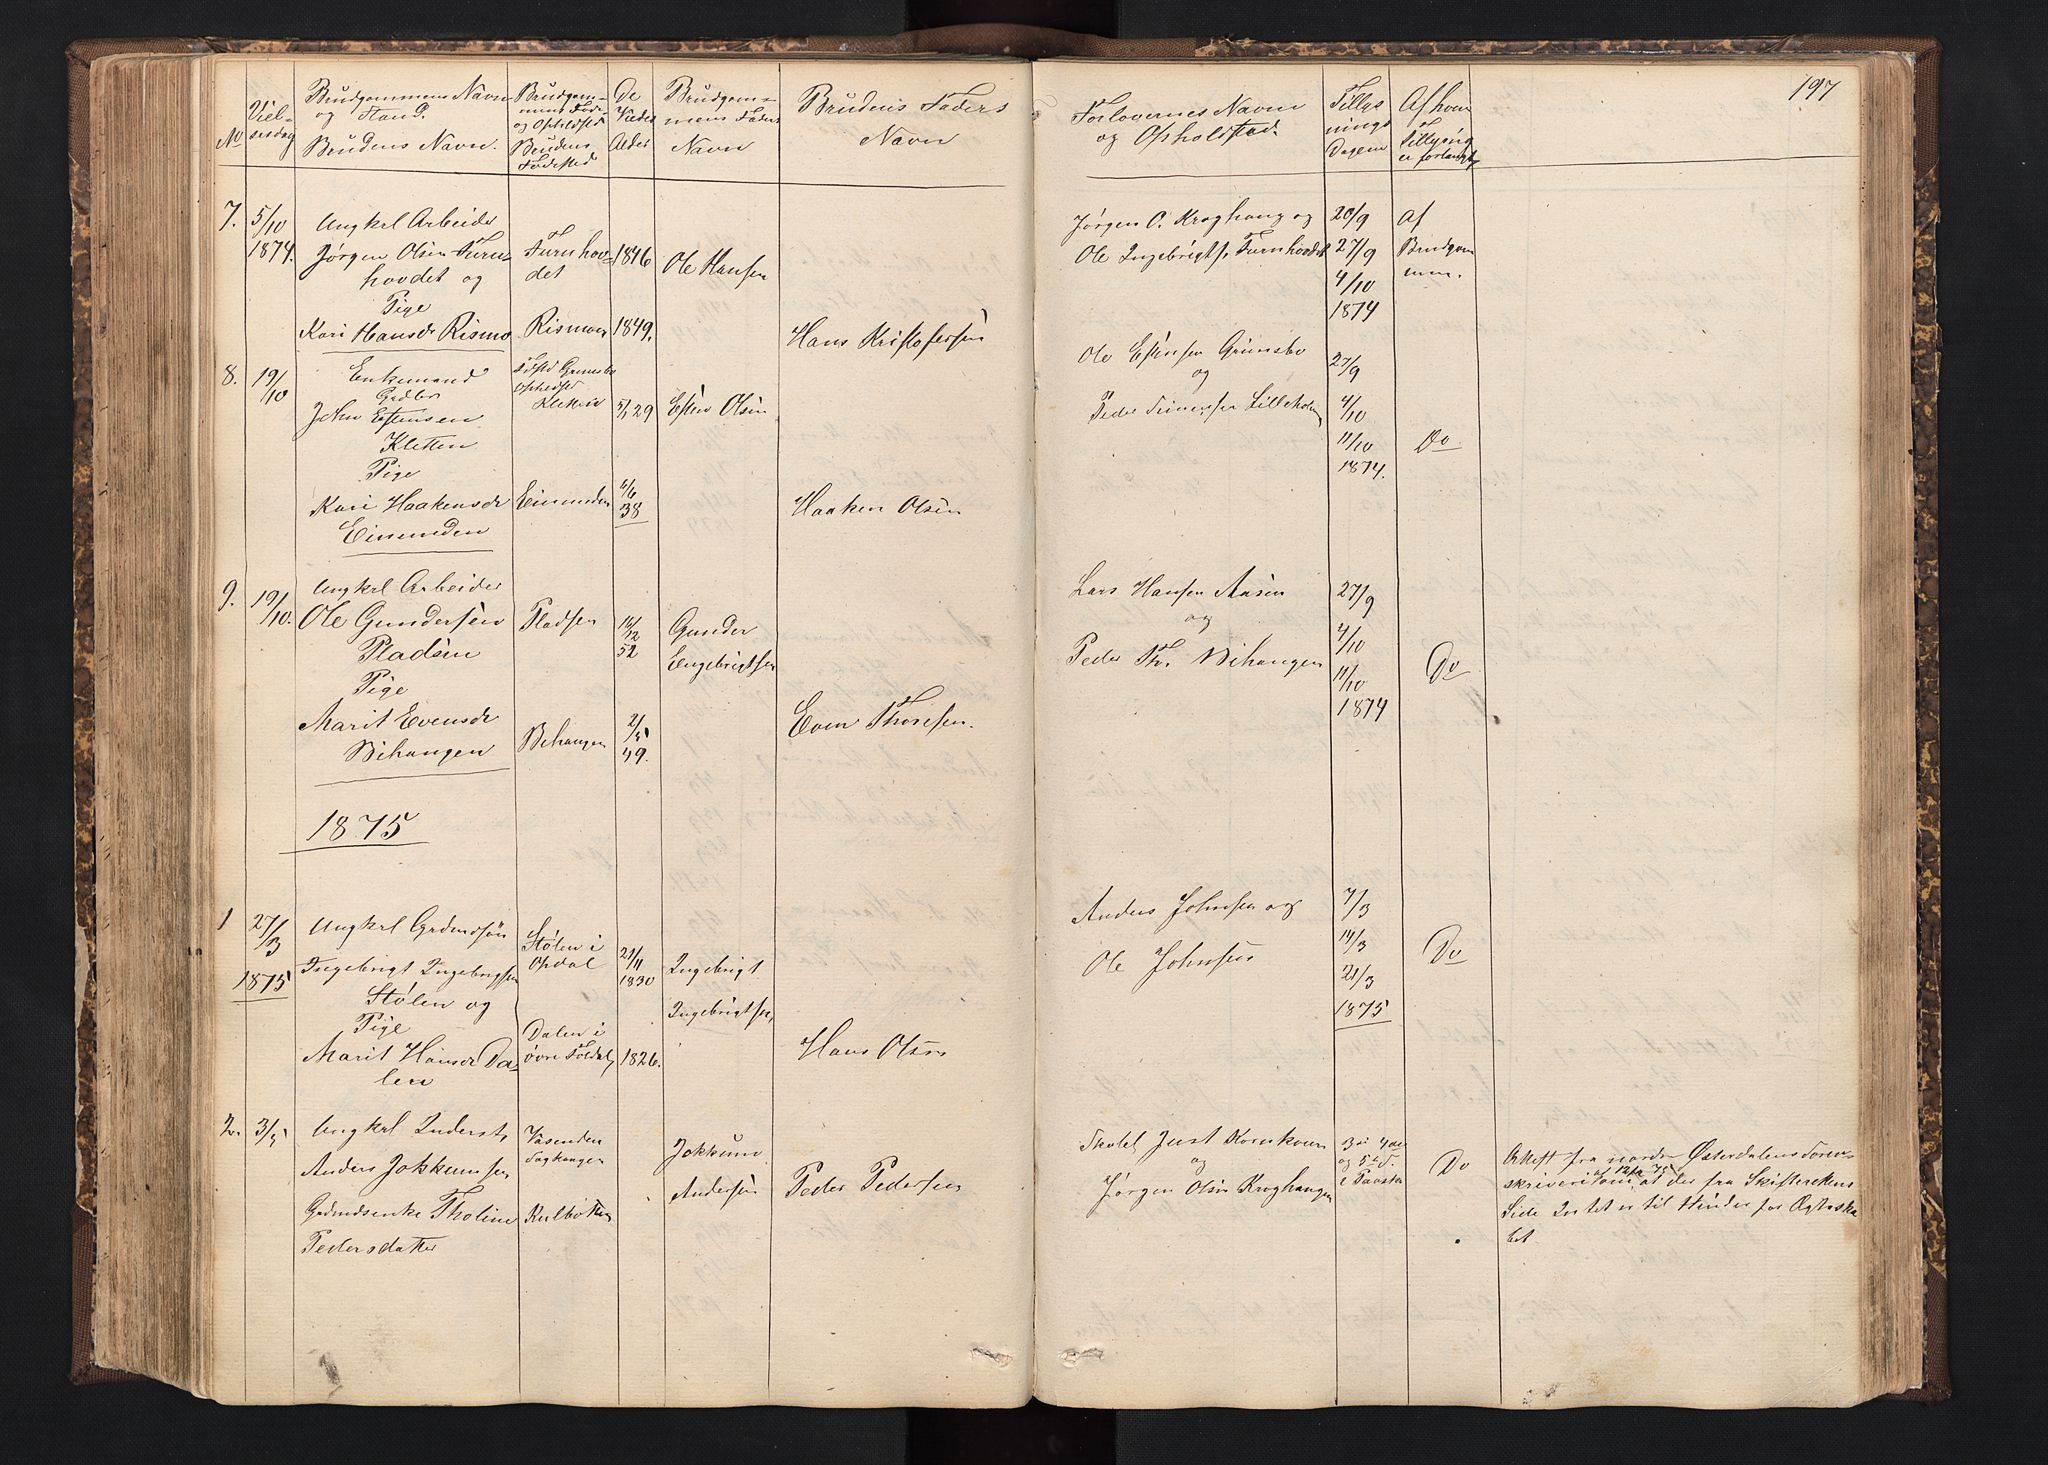 197
No
Viel-
sesdag
Brudgommens Navn
og Stand.
Brudens Navn.
Brudgom-
mens Føde
og Opholdsted
Brudens
Fødested
De
Viedes
Alder
Brudgom-
mens Faders
Navn
Brudens Faders
Navn
Forlovernes Navn
og Opholdsted.
Tillys
nings
Dagene
Af hvem
Tillysing
er forlangt
7.
5/10
1874.
Ungkrl Arbeider
Jørgen Olsen Furu-
hovdet og
Pige
Kari Hansdr Rismo
Furuhov-
det
Rismoen
1846
1849.
Ole Hansen
Hans Kristofersen
Jørgen O. Kroghaug og
Ole Ingebrigts. Furuhovdet
20/9
27/9
4/10
1874
Af
Brudgom
men.
8.
19/10
Enkemand
Grdbr
John Estensen
Kletten
Pige
Kari Haakensdr
Eimunden
Kletten
Eimunden
5/1 29
11/6
38
Esten Olsen
Haaken Olsen
Ole Estensen Grimsbo
og
Peder Simensen Lilleholm
27/9
4/10
11/10
1874.
Do
9.
19/10.
Ungkrl Arbeider
Ole Gundersen
Pladsen
Pige
Marit Evensdr
Brhaugen
Pladsen
Brhaugen
16/12
52
2/5
49.
Gunder
Engebrigtsen
Even Thoresen.
Lars Hansen Aasen
og
Peder Th. Brhaugen
27/9
4/10
11/10
1874
Do
1875
1
27/3
1875
Ungkrl Grdmdsøn
Ingebrigt Ingebrigtsen
Stølen og
Pige
Marit Hansdr Da-
len
Stølen i
Opdal
Dalen i
øvre Foldal
21/11
1830
1826.
Ingebrigt
Ingebrigtsen
Hans Olsen
Anders Johnsen og
Ole Johnsen
7/3
14/3
21/3
1875
Do
2.
3/5
Ungkrl Inderst
Anders Jokkumsen
Grdmdsenke Tholine
Pedersdatter
Vasenden
Foghaugen
Kulbotten
Jokkum
Andersen
Peder Pedersen
Skolel Just Kornhoug
og
Jørgen Olsen Kroghaugen
3die 4de
og 5te S.
i Faasten
Do
Attest fra nordre Østerdalens Soren-
skriveri om af 12/4 75 at der fra Skifterettens
Side Intet er til Hinder for Ægteska
bet